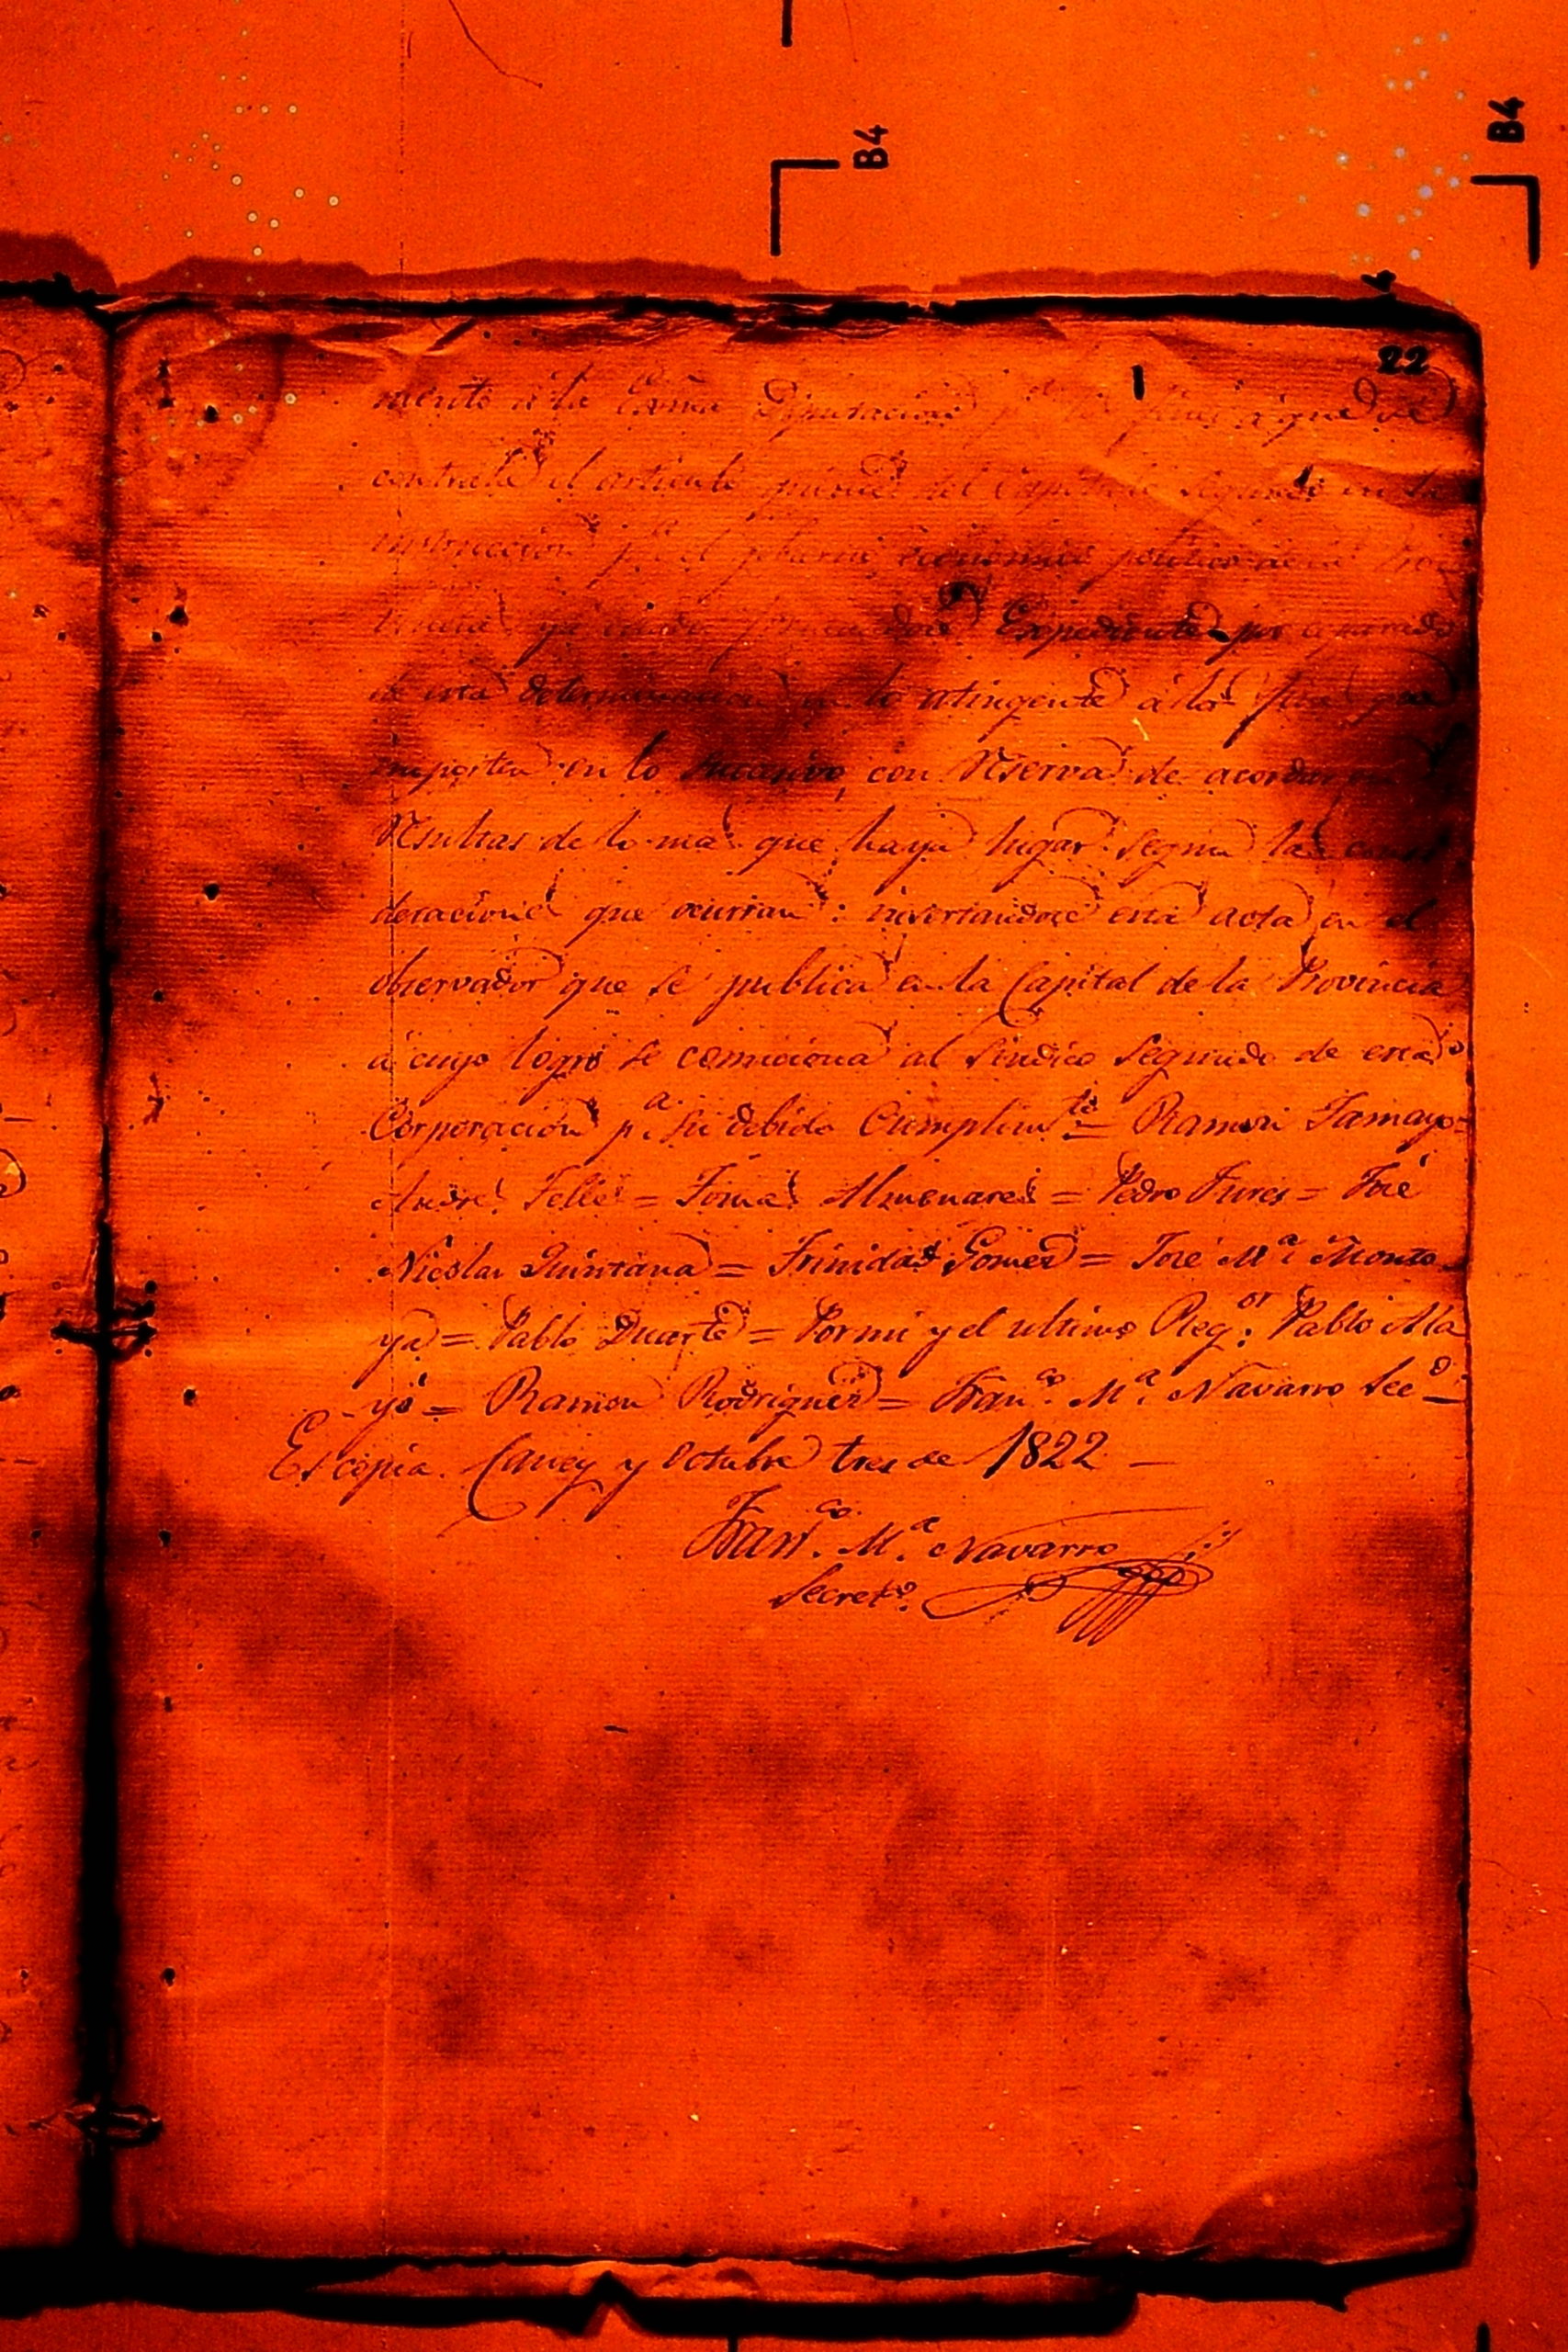 B4
B4
22
mento á la Exma Diputacion pª los fines á que se
contrahe el articulo primero del Capitulo segundo en la
instruccion pª el gobierno economico politico de las Pro
vincias y quedar formandose Expediente por separado
de esta determinacion en lo atingente á los que
importen en lo sucesivo, con reserva de acordar
resultas de lo mas que haya lugar segun las consi
deraciones que ocurran: insertandose esta acta en el
observador que se publica en la Capital de la Provincia
á cuyo logro se comiciona al sindico segundo de esta
Corporacion pª su debido Cumplimto = Ramon Tamayo =
Andres Telles = Tomas Almenares = Pedro Jures = José
Nicolas Quintana = Trinidad Gomes = José Mª Monto
ya = Pablo Duarte = Por mi y el ultimo Regor Pablo Ala
yo = Ramon Rodriguez = Franco Mª Navarro Seco
Es copia. Caney y Octubre tres de 1822 —
Franco. Mª. Navarro
Secreto.